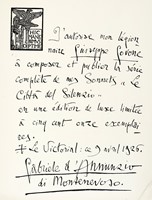 J'autorise mon légion
naire Giuseppe Govone
à composer et publier la série
complète de mes Sonnets de Le
Città del Silenzio
en une édition de luxe limitée
à cinq cent onze exemplai
res.
Le Vittoriale: ce 3 1926.
Gabriele d'Annunzio
di Montenevoso.